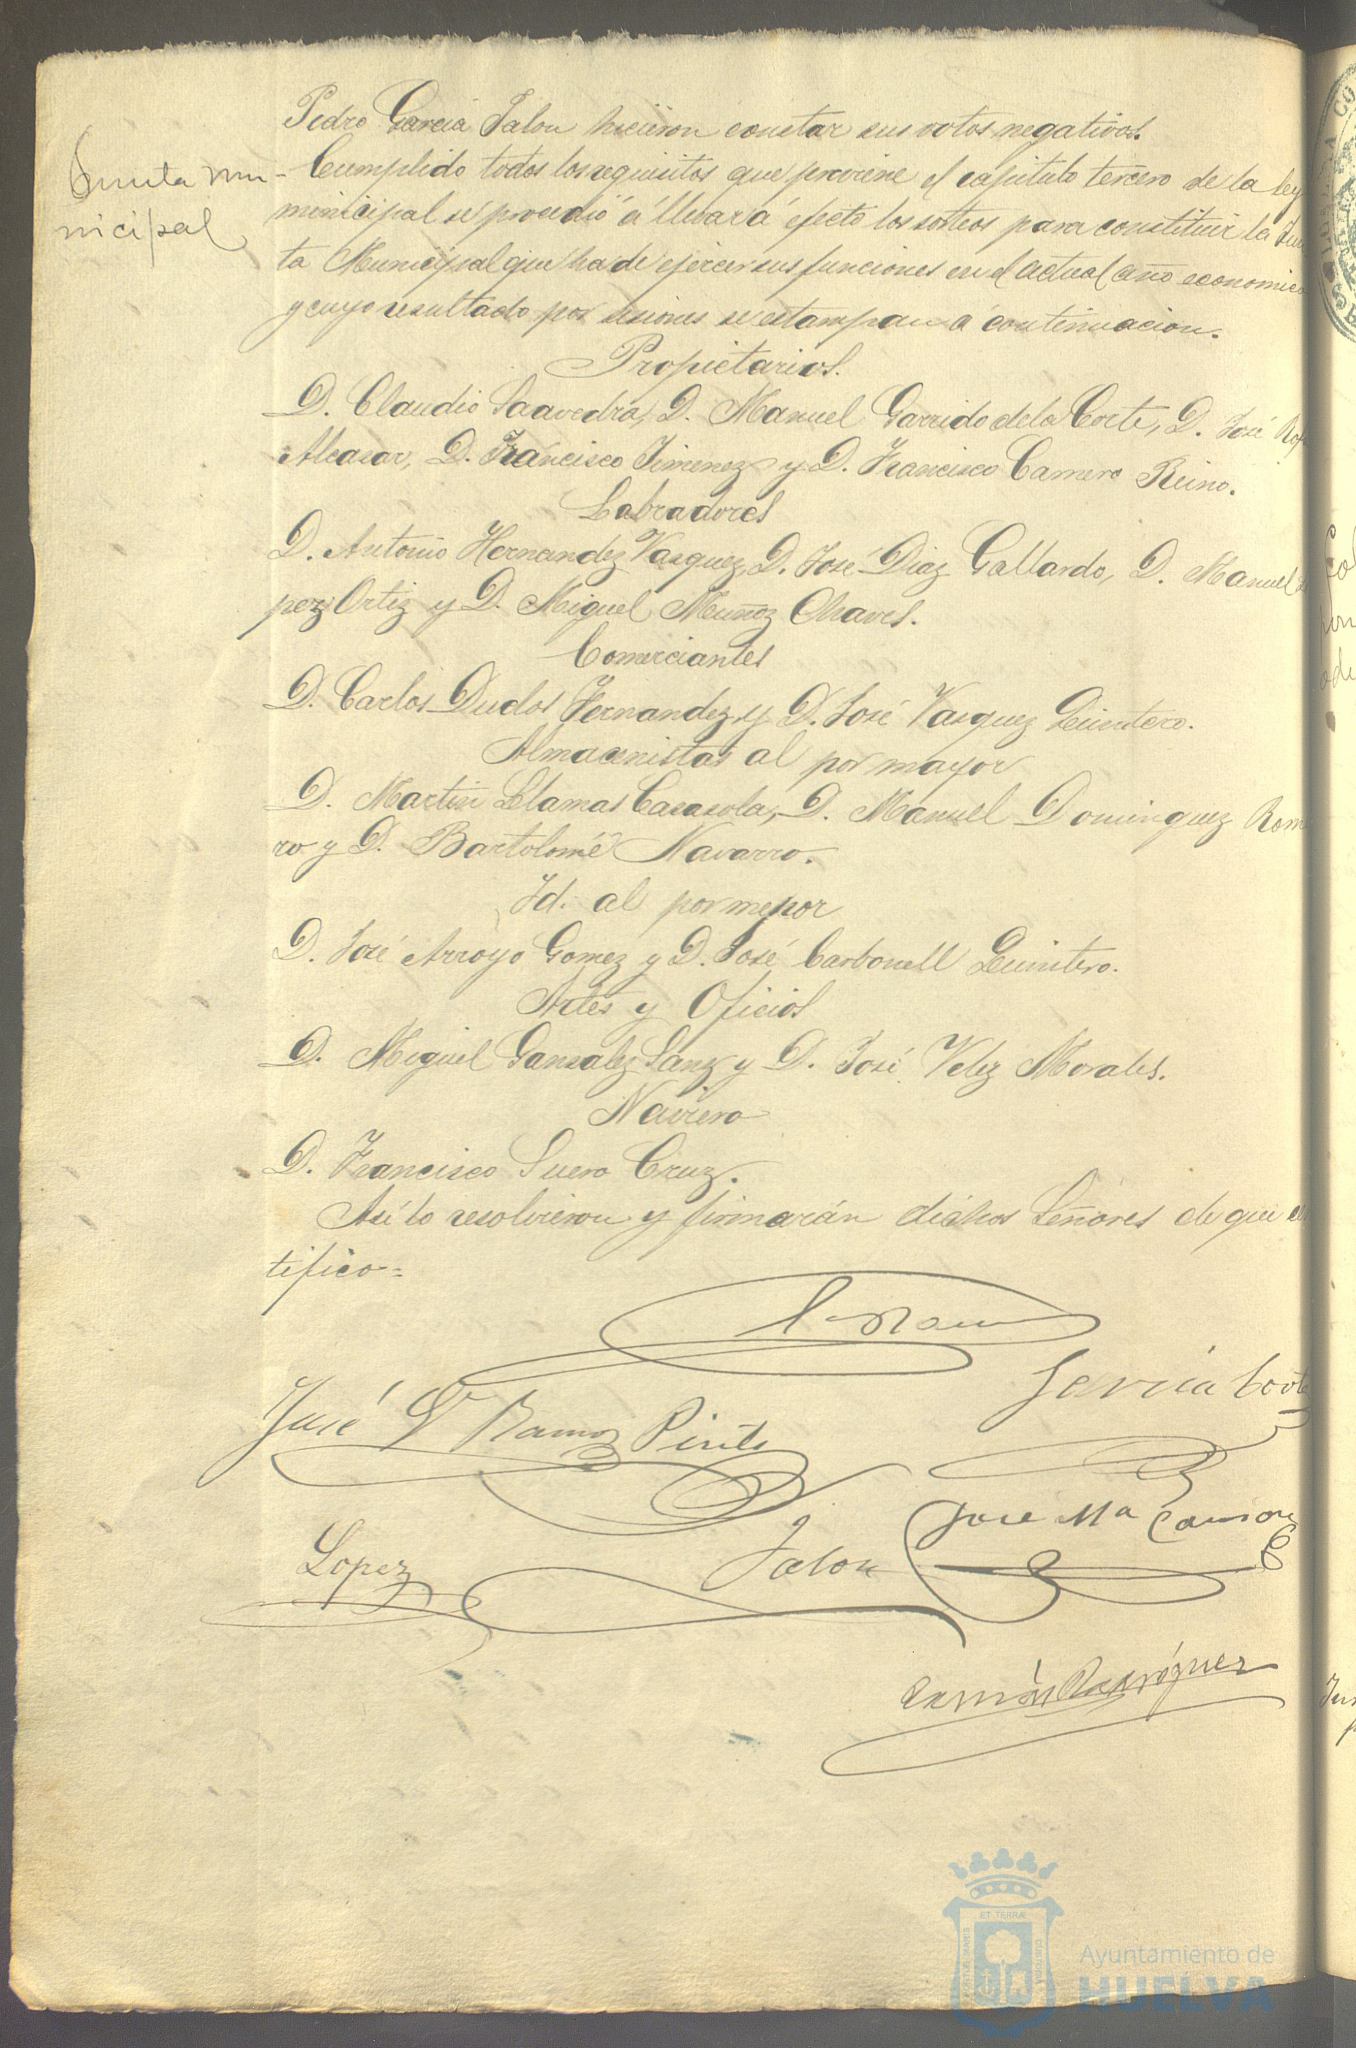 Pedro García Jalon hicieron constar sus votos negativos.
Junta mu-
nicipal
Cumplido todos los requisitos que previene el capitulo tercero de la ley
municipal se procedió á llevar á efecto los sorteos para constituir la Jun
ta Municipal que ha de ejercer sus funciones en el actual año economico
y cuyo resultado por sesiones se estampan á continuacion.
Propietarios.
D. Claudio Saavedra, D. Manuel Garrido de la Corte, D. José
Alcasar, D. Francisco Jimenez y D. Francisco Camero Reino.
Labradores
D. Antonio Hernandez Vasquez, D. José Diaz Gallardo, D. Manuel Lo
pez Ortiz y D. Miguel Muñoz Chaves.
Comerciantes
D. Carlos Dudos Fernandez y D. José Vasquez Quintero.
Almacenistas al por mayor
D. Martin Llamas Casasola, D. Manuel Dominguez Rome
ro y D. Bartolomé Navarro.
Id. al por menor
D. José Arroyo Gomez y D. José Carbonell Quintero.
Artes y Oficios
D. Miguel Gonzalez Sanz y D. José Velez Morales.
Naviero
D. Francisco Suero Cruz.
Así lo resolvieron y firmarán dichos Señores de que cer
tifico=
García Cortes
José Ramos Pinto
José Mª
Lopez
Jalon
Ramón Rodríguez
ET TERRÆ
Ayuntamiento de
HUELVA